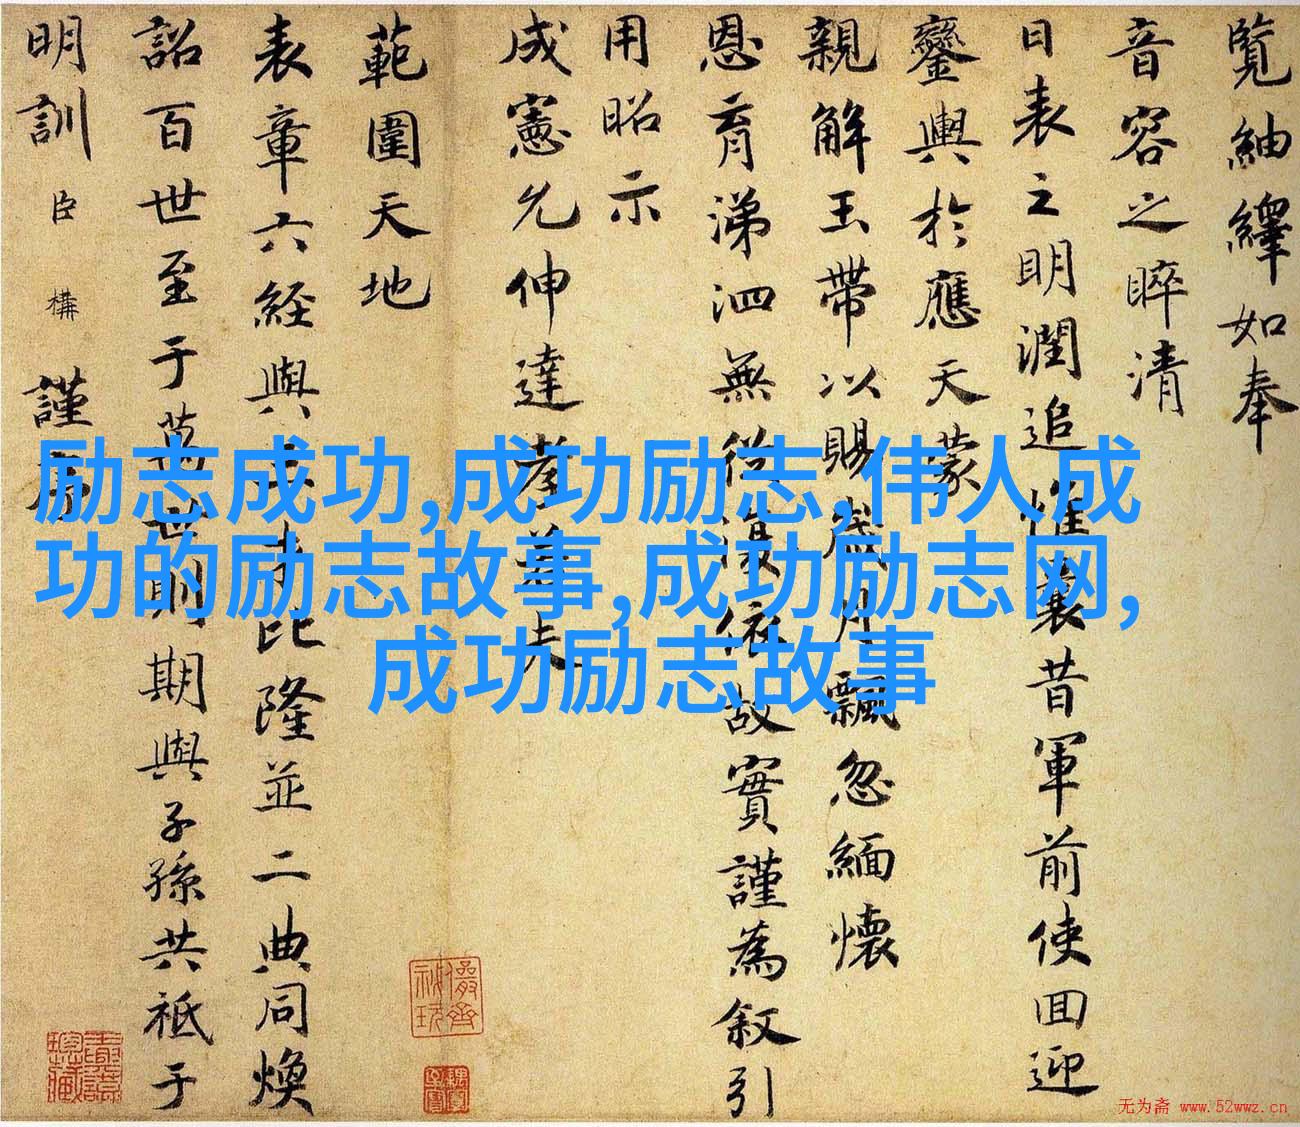 覽紬繹如奉
音容之睟清
日表之明潤追惟曩昔軍前使回迎
鑾輿於應天蒙
親解玉帶以賜歲月飄忽緬懷
恩育涕泗無從復依故實謹為叙引
用昭示
成憲允伸達孝若夫
範圍天地
表章六經與
比隆並二典同煥
詔百世至于萬世則期與子孫共祗于
明訓臣構謹序
励志成功,成功励志,伟人成
功的励志故事,成功励志网,
成功励志故事
无为斋 www.52wwz.cn